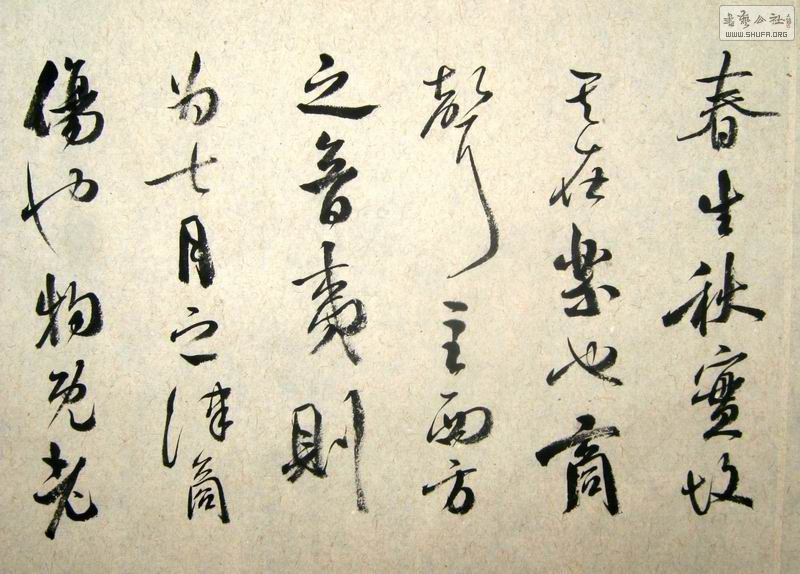 春生秋實故
其在樂也商
聲主西方
之音夷則
為七月之律商
傷也物既老
書藝公社
WWW.SHUFA.ORG